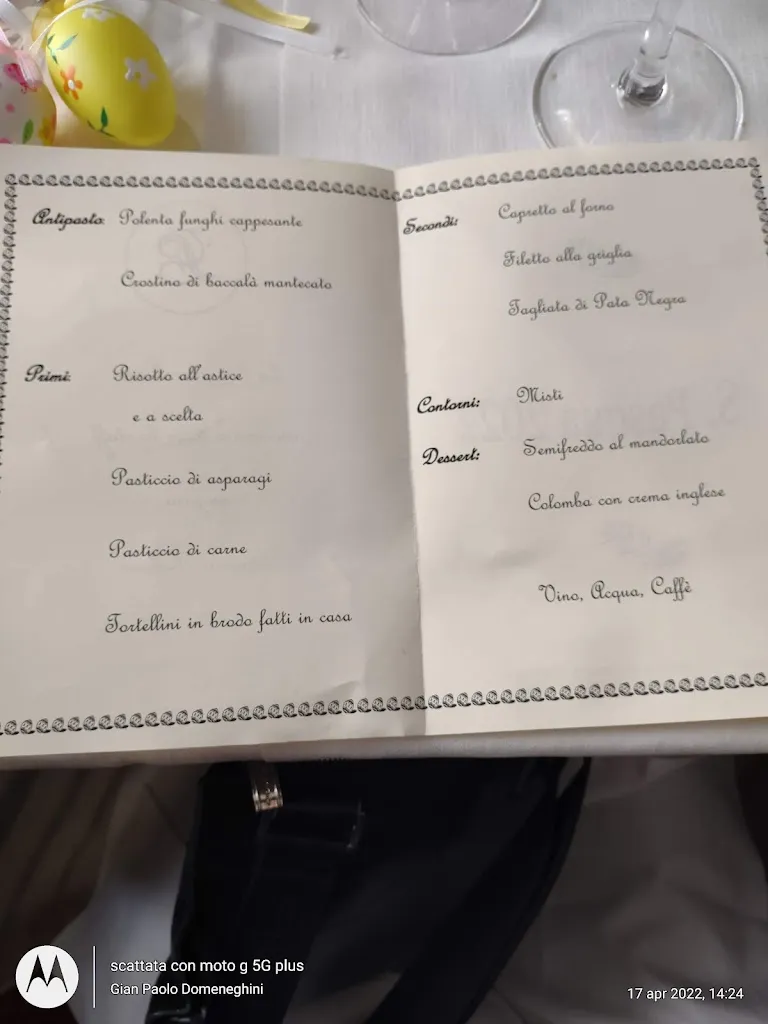 Antipasto: Polenta funghi cappesante
Crostino di baccalà mantecato
Primi: Risotto all'astice
e a scelta
Pasticcio di asparagi
Pasticcio di carne
Tortellini in brodo fatti in casa
Secondi: Capretto al forno
Filetto alla griglia
Tagliata di Pata Negra
Contorni: Misti
Dessert: Semifreddo al mandorlato
Colomba con crema inglese
Vino, Acqua, Caffè
scattata con moto g 5G plus
Gian Paolo Domeneghini
17 apr 2022, 14:24